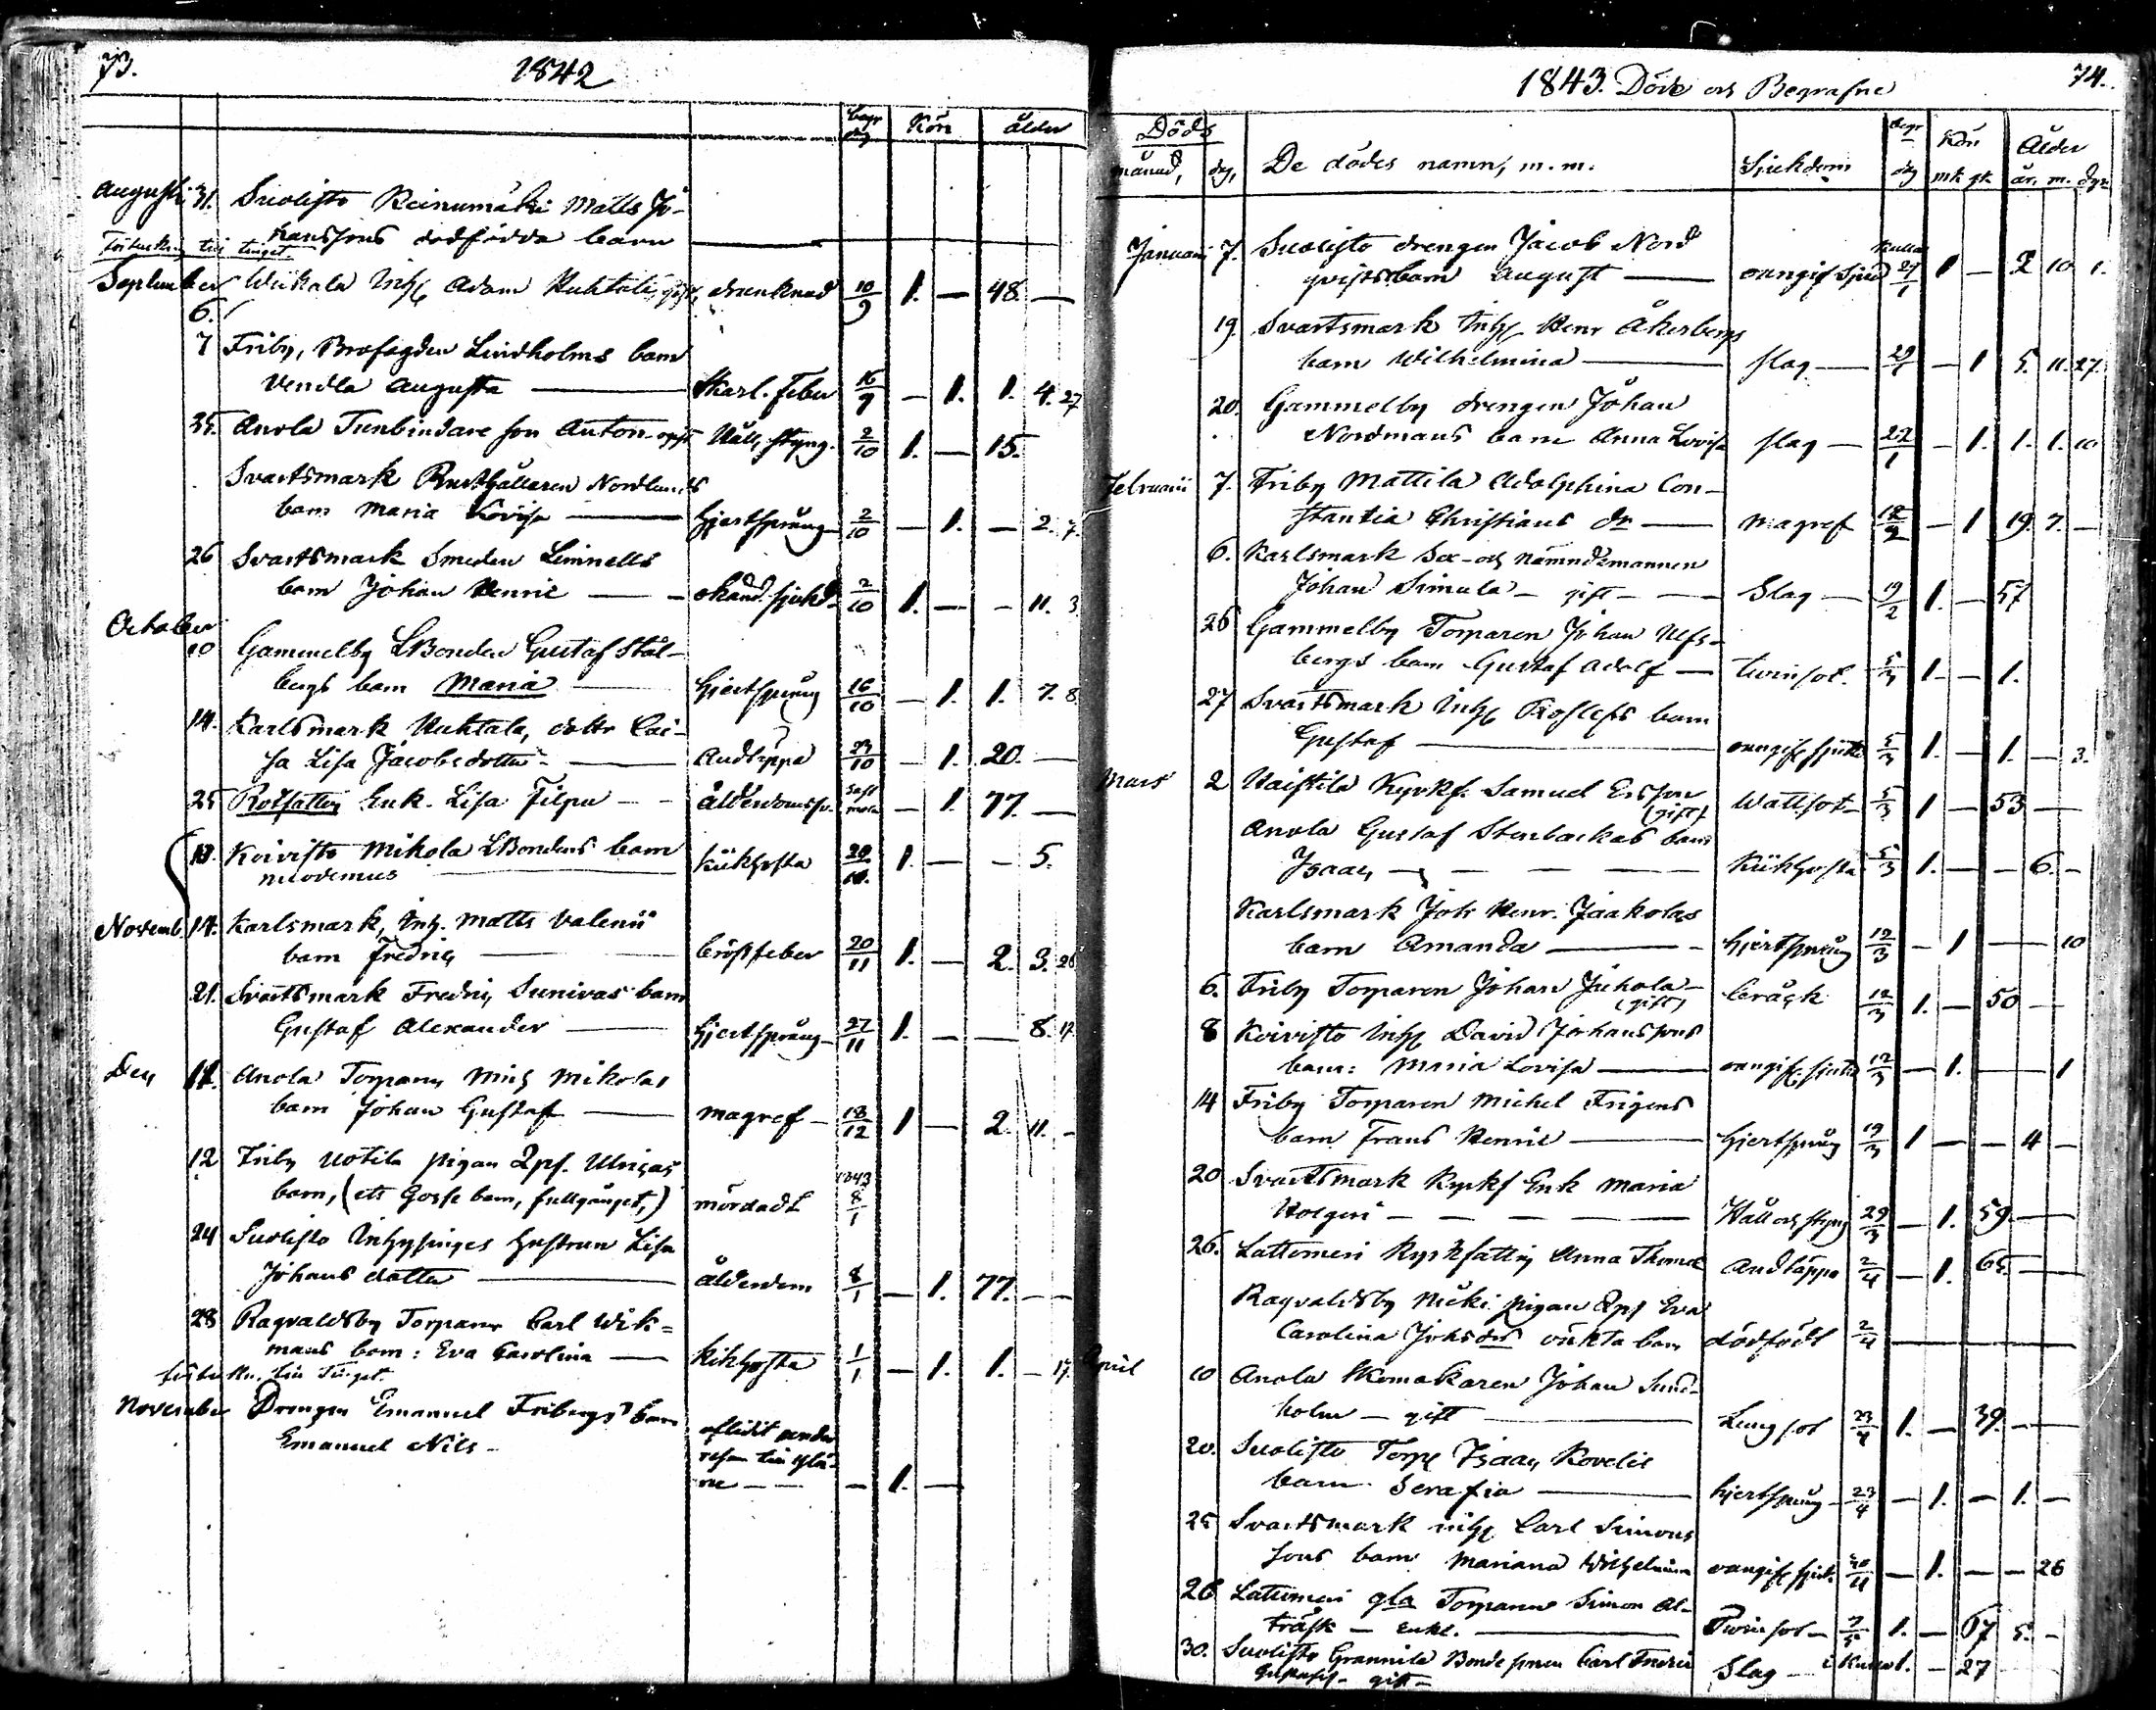 73.
1842
begr dag Kön ålder
Augusti 31. Suolisto Reinumäki Matts Jo-
hanssons dödfödda barn
till tinget.
September Wiikala Inhs Adam Huhtala, gift, drunknad 10/9 1. — 48. —
6.
7 Friby, Brofogden Lindholms barn
Vendla Augusta — Skarl. feber 16/9 — 1. 1. 4. 27
25. Anola Tunbindare son Anton Håll, styng. 2/10 1. — 15.
Svartsmark Rusthållaren Nordlunds
barn Maria Lovisa — hjertsprång 2/10 — 1. — 2. 7.
26 Svartsmark Smeden Linnells
barn Johan Henric — okänd. sjukd. 2/10 1. — - 11. 3
October
10 Gammelby LBonden Gustaf Stål-
bergs barn Maria — hjertsprång 16/10 — 1. 1. 7. 8
14. Karlsmark Huhtala, dottr Cai-
sa Lisa Jacobsdotter — Andtäppa 23/10 — 1. 20. —
25 Rotfattig Enk. Lisa Filpu - - ålderdomssv. — 1. 77. —
13. Koivisto Mikola LBondens barn
Nicodemus — kikhosta 20/10. 1. — - 5.
Novemb. 14. Karlsmark, Inh. Matts Valenii
barn Fredric — bröstfeber 20/11 1. — 2. 3. 26
21. Svartsmark Fredric Sunivas barn
Gustaf Alexander — hjertsprång 27/11 1. — — 8. 17.
Dec 11. Anola Torparen Mich Mikolas
barn Johan Gustaf — magref - 18/12 1 — 2. 11. -
12 Friby Uotila pigan Qpf. Ulricas 1843
barn, (ett Gosse barn, fullgånget,) mördadt 8/1
24 Suolisto Inhysinges hustrun Lisa
Johans dotter — ålderdom 8/1 — 1. 77. — -
28 Ragvaldsby Torparen Carl Wik=
mans barn: Eva Carolina — kikhosta 1/1 — 1. 1. - 17.
till Tinget.
November Drengen Emanuel Fribergs barn
Emanuel Nils - aflidit under
resan till
- — — 1. —
1843. Döde och Begrafne 74.
Döds begr Kön Ålder
månad, dag, De dödes namn, m. m. Sjukdom dag mk qk år. m. dgr
Januari 7. Suolisto drengen Jacob Nord
qvists barn August — oangif sjukd 29/1 1 — 2 10 1.
19. Svartsmark Inhs Henr Åkerbergs
barn Wilhelmina — slag — 29/1 — 1 5. 11. 27.
20. Gammelby drengen Johan
Nordmans barn Anna Lovisa slag — 22/1 — 1. 1. 1. 10
Februarii 7. Friby Mattila Adolphina Con-
stantia Christians dr — magref 12/2 — 1 19. 7. —
6. Karlsmark Sex- och nämndemannen
Johan Simula - gift - — Slag — 19/2 1. — 57
26 Gammelby Torparen Johan Ulfs-
bergs barn Gustaf Adolf — twinsot. 5/3 1. — 1.
27 Svartsmark Inhs Roslefs barn
Gustaf — oangif. sjukd 5/3 1. — 1. — 3.
Mars 2 Haistila Kyrkf. Samuel Ersson
(gift) Wattsot- 5/3 1 — 53 —
Anola Gustaf Stenbackas barn
Isaac — - — — — Kikhosta 5/3 1. — — 6. -
Karlsmark Joh Henr. Jaakolas
barn Amanda — hjertsprång 12/3 — 1 — 10
6. Friby Torparen Johan Juhola -
(gift) bråck 12/3 1. — 50 —
8 Koivisto Inhs David Johanssons
barn: Maria Lovisa — oangif. sjukd 12/3 — 1. — 1
14 Friby Torparen Michel Frigens
barn Frans Henric — hjertsprång 19/3 1 — - 4 -
20 Svartsmark Kyrkf Enk Maria
— — — — Håll och styng 29/3 — 1. 59. —
26. Lattomeri Kyrkfattig Anna Thomæ Andtäppa 2/4 — 1. 65. —
Ragvaldsby pigan Qpf Eva
Carolina Johsdrs oäkta barn dödfödt 2/4 —
April 10 Anola Skomakaren Johan Sund-
holm - gift — Lungsot 23/4 1. — 39. — —
20. Suolisto Torp Isaac Rovelii
barn Serafia — hjertsprång 23/4 — 1. — 1. —
25 Svartsmark inhs Carl Simons
sons barn Mariana Wilhelmina oangif sjukd. 30/4 — 1. — — 26
26 Lattomeri gla Torparen Simon Al-
träsk - enkl. — Twinsot - 7/5 1. — 67 5. -
30. Suolisto Grannila Bonde sonen Carl Fredric
gift - Slag — 1. — 27